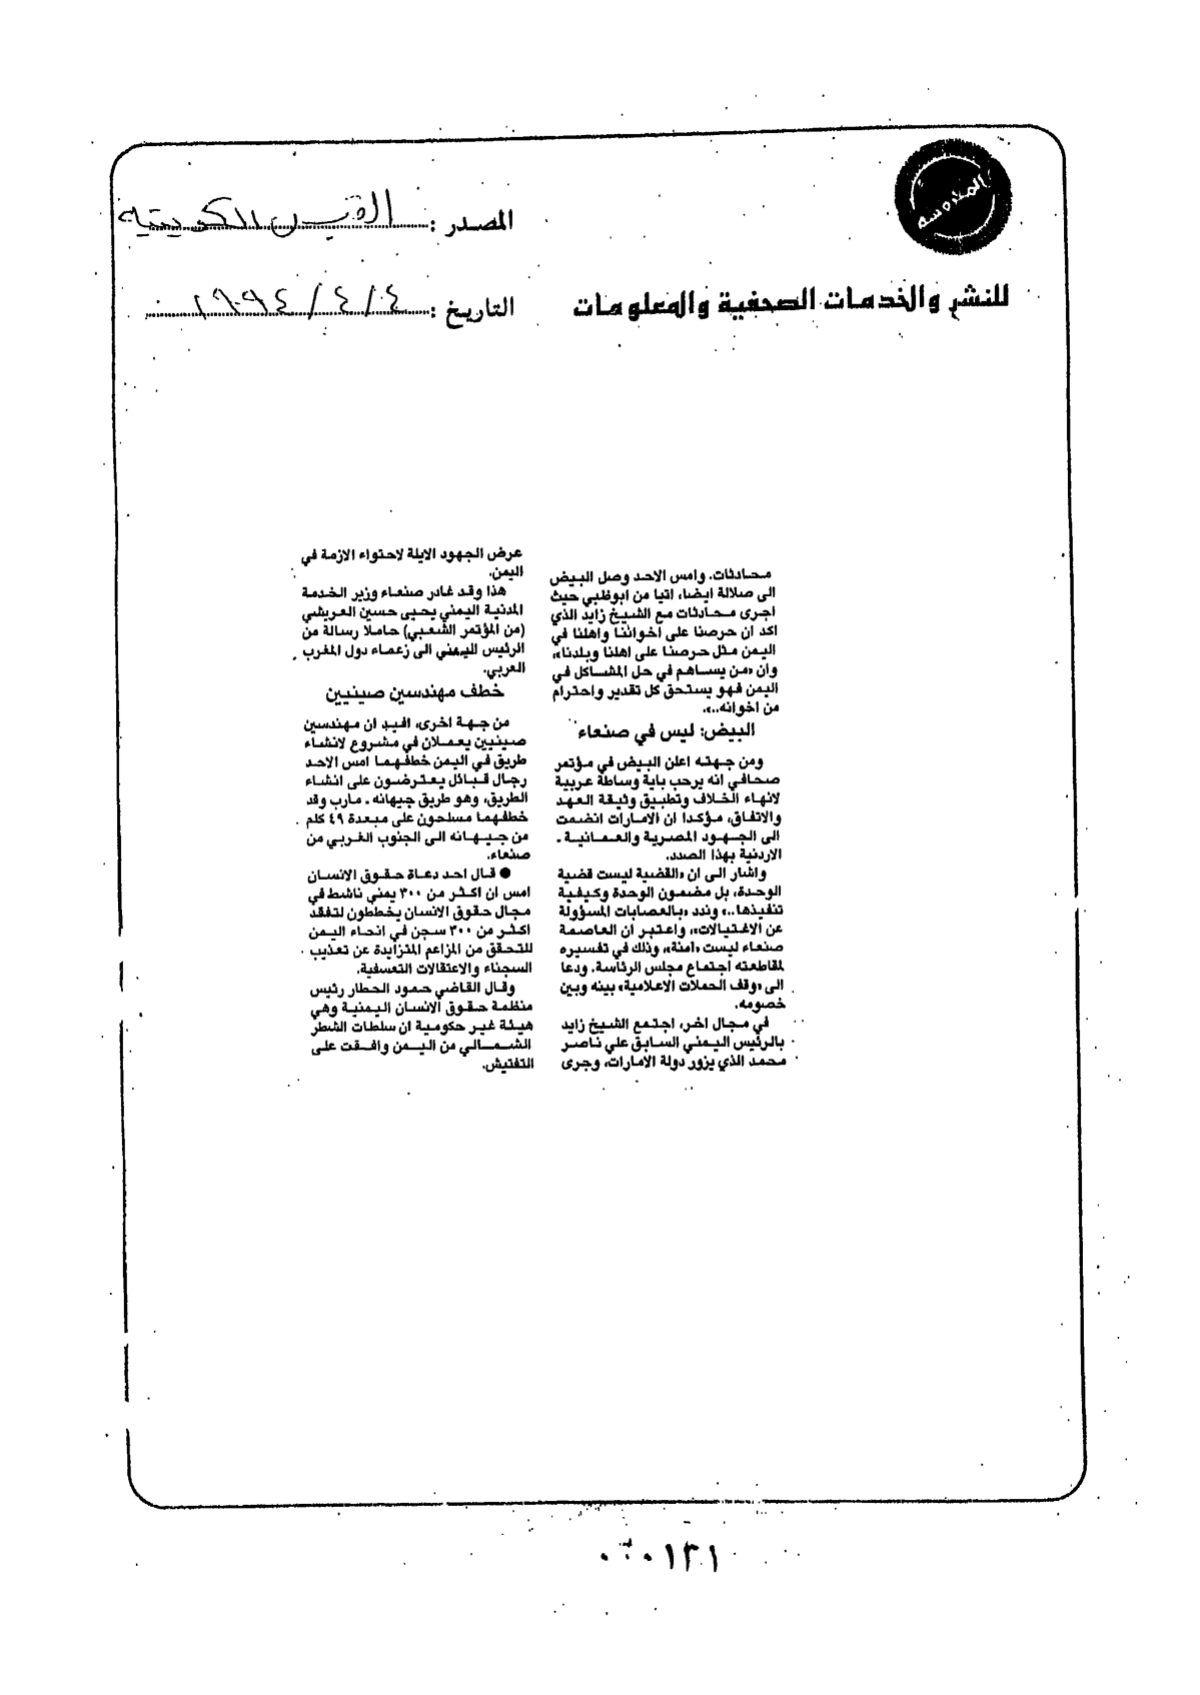 المصدر : القبس الكويتية
للنشر والخدمات الصحفية والمعلومات
التاريخ : ٤ / ٤ / ١٩٩٤
محادثات. وامس الاحد وصل البيض
الى صلالة ايضا، اتيا من ابوظبي حيث
اجرى محادثات مع الشيخ زايد الذي
اكد ان حرصنا على اخواننا واهلنا في
اليمن مثل حرصنا على اهلنا وبلدنا»،
وان «من يساهم في حل المشاكل في
اليمن فهو يستحق كل تقدير واحترام
من اخوانه..».
البيض: ليس في صنعاء
ومن جهته اعلن البيض في مؤتمر
صحافي انه يرحب باية وساطة عربية
لانهاء الخلاف وتطبيق وثيقة العهد
والاتفاق، مؤكدا ان الامارات انضمت
الى الجهود المصرية والعمانية ـ
الاردنية بهذا الصدد.
واشار الى ان «القضية ليست قضية
الوحدة، بل مضمون الوحدة وكيفية
تنفيذها..» وندد «بالعصابات المسؤولة
عن الاغتيالات»، واعتبر ان العاصمة
صنعاء ليست «امنة»، وذلك في تفسيره
لمقاطعته اجتماع مجلس الرئاسة. ودعا
الى «وقف الحملات الاعلامية» بينه وبين
خصومه.
في مجال اخر، اجتمع الشيخ زايد
بالرئيس اليمني السابق علي ناصر
محمد الذي يزور دولة الامارات، وجرى
عرض الجهود الايلة لاحتواء الازمة في
اليمن.
هذا وقد غادر صنعاء وزير الخدمة
المدنية اليمني يحيى حسين العريشي
(من المؤتمر الشعبي) حاملا رسالة من
الرئيس اليمني الى زعماء دول المغرب
العربي.
خطف مهندسين صينيين
من جهة اخرى، افيد ان مهندسين
صينيين يعملان في مشروع لانشاء
طريق في اليمن خطفهما امس الاحد
رجال قبائل يعترضون على انشاء
الطريق، وهو طريق جيهانه ـ مارب وقد
خطفهما مسلحون على مبعدة ٤٩ كلم
من جيهانه الى الجنوب الغربي من
صنعاء.
● قال احد دعاة حقوق الانسان
امس ان اكثر من ٣٠٠ يمني ناشط في
مجال حقوق الانسان يخططون لتفقد
اكثر من ٣٠٠ سجن في انحاء اليمن
للتحقق من المزاعم المتزايدة عن تعذيب
السجناء والاعتقالات التعسفية.
وقال القاضي حمود الحطار رئيس
منظمة حقوق الانسان اليمنية وهي
هيئة غير حكومية ان سلطات الشطر
الشمالي من اليمن وافقت على
التفتيش.